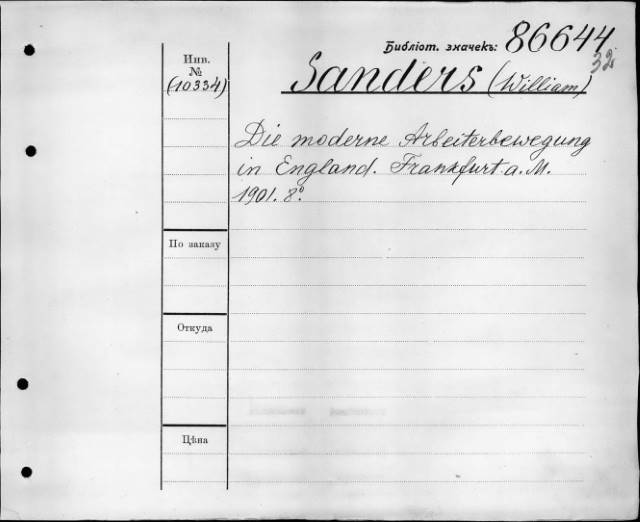 Библіот. значекъ: 86644
32
Инв.
№
(10334)
Sanders (William)
Die moderne Arbeiterbewegung
in England. Frankfurt a. M.
1901. 8º
По заказу
Откуда
Цѣна